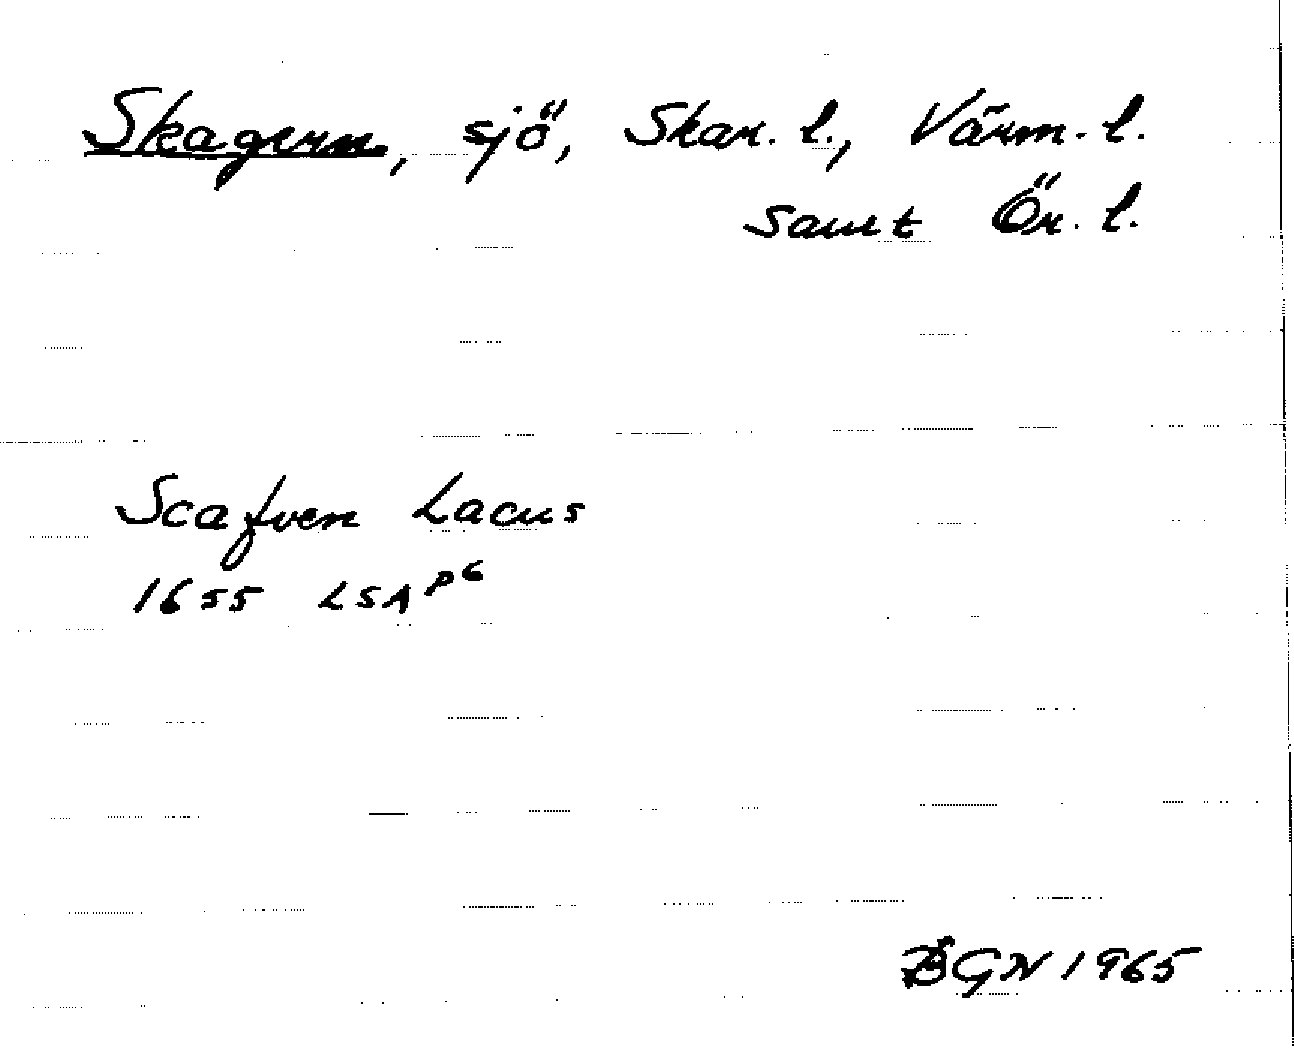 Skagern, sjö, Skar. l., Värm. l.
samt Ör. l.
Scafven Lacus
1655 LSA P6
BGN 1965